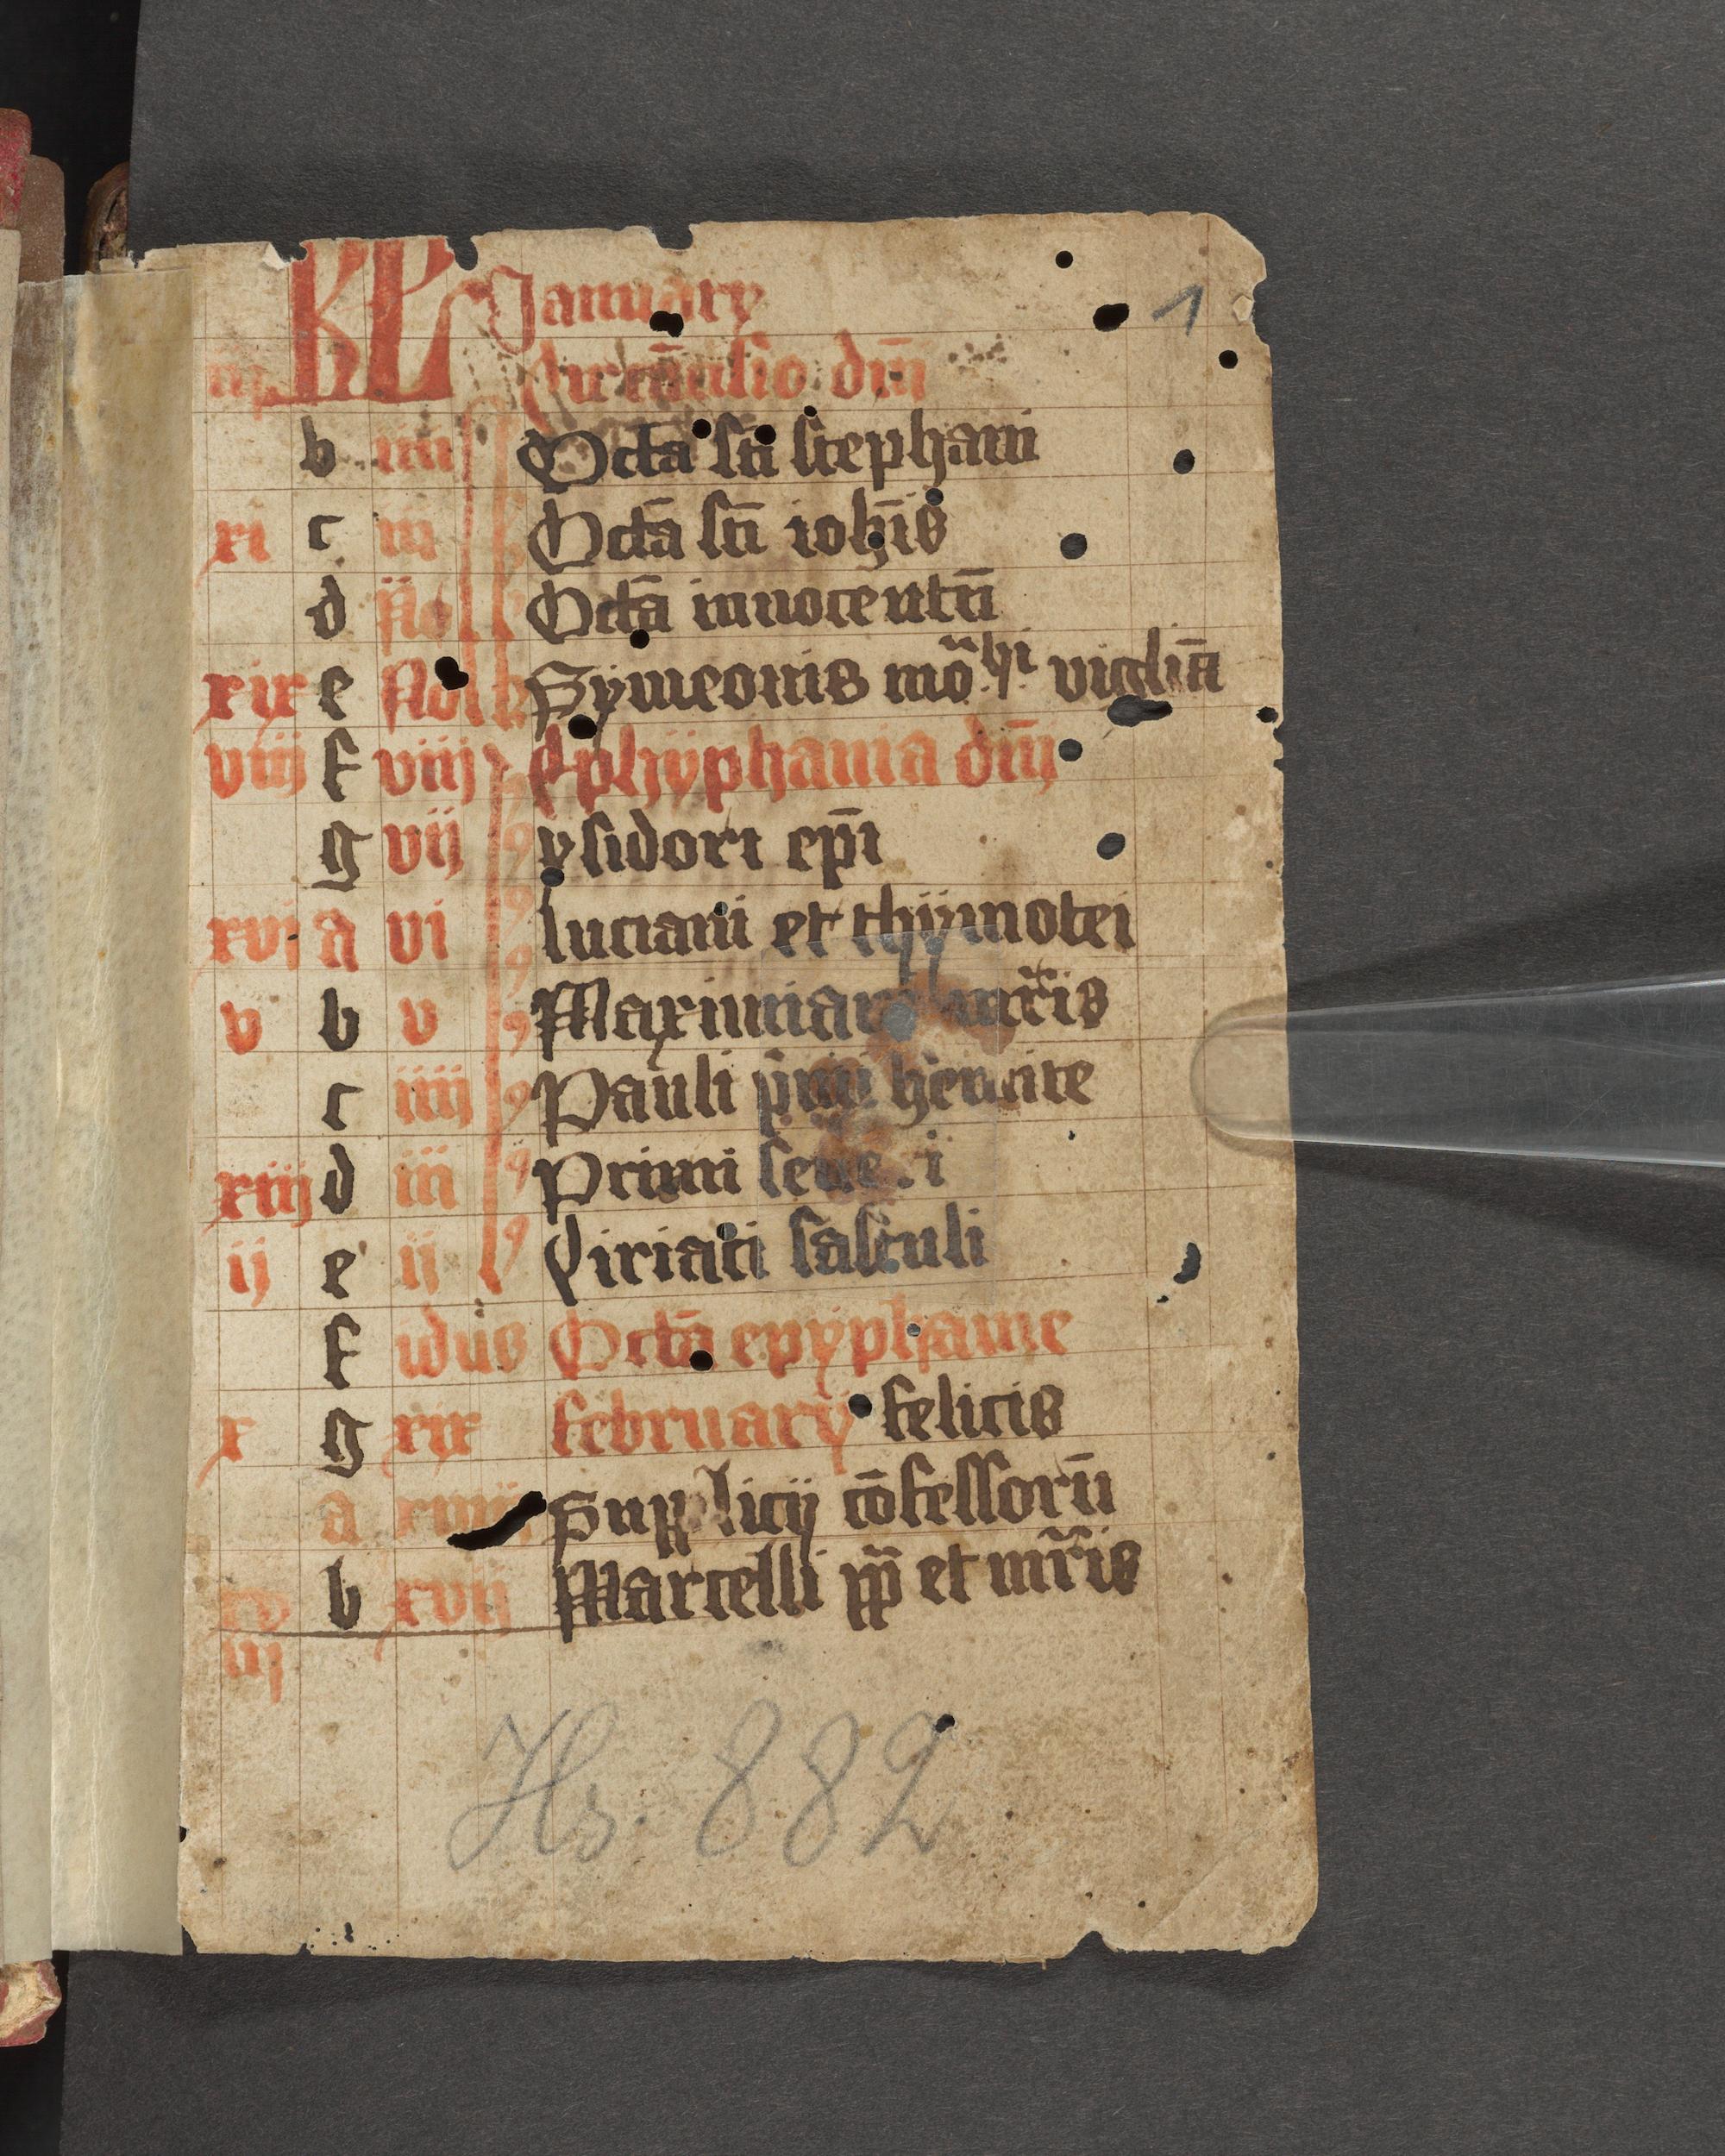 KL January 1
iij Circũcisio dnĩ
b iiii Octa sti stephani
xi c iii Octã sti iohĩs
d ii No Octã innocentũ
xix e No Symeonis mõhi vigliã
viij f viij Ephyphania dnĩ
g vij ysidori epĩ
xvj a vi luciani et thymotei
v b v Maximiani mr̃is
c iiij Pauli p̃mi h'emite
xiij d iii Primi seueri
ij e ij Ciriaci sasculi
f idus Octã epyphanie
x g xix februarij felicis
a xviij Supplicij cõfessorũ
xv b xvij Marcelli pp̃ et mr̃is
iij
Hs. 882